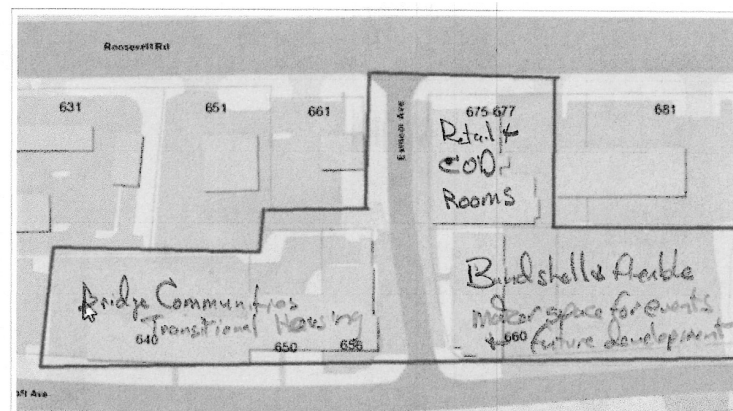 Roosevelt Rd
631
651
661
Exmoor Ave
675-677
681
Retail &
COD
Rooms
Bridge Communities
Transitional Housing
640
650
656
Bandshell & flexible
space for events
& future development
660
Ave